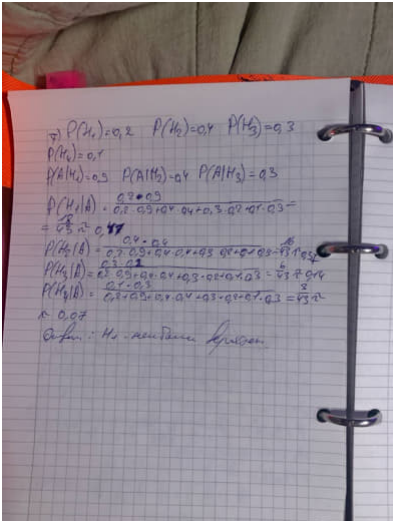 7) P(H₁)=0,2 P(H₂)=0,4 P(H₃)=0,3
P(H₄)=0,1
P(A|H₁)=0,9 P(A|H₂)=0,4 P(A|H₃)=0,3
P(H₁|A) = 0,2·0,9 / 0,2·0,9+0,4·0,4+0,3·0,2+0,1·0,3 =
= 18/43 ≈ 0,47
P(H₂|A) = 0,4·0,4 / 0,2·0,9+0,4·0,4+0,3·0,2+0,1·0,3 = 16/43 ≈ 0,37
P(H₃|A) = 0,3·0,2 / 0,2·0,9+0,4·0,4+0,3·0,2+0,1·0,3 = 6/43 ≈ 0,14
P(H₄|A) = 0,1·0,3 / 0,2·0,9+0,4·0,4+0,3·0,2+0,1·0,3 = 3/43 ≈
≈ 0,07
Ответ: H₁ - наиболее вероятен